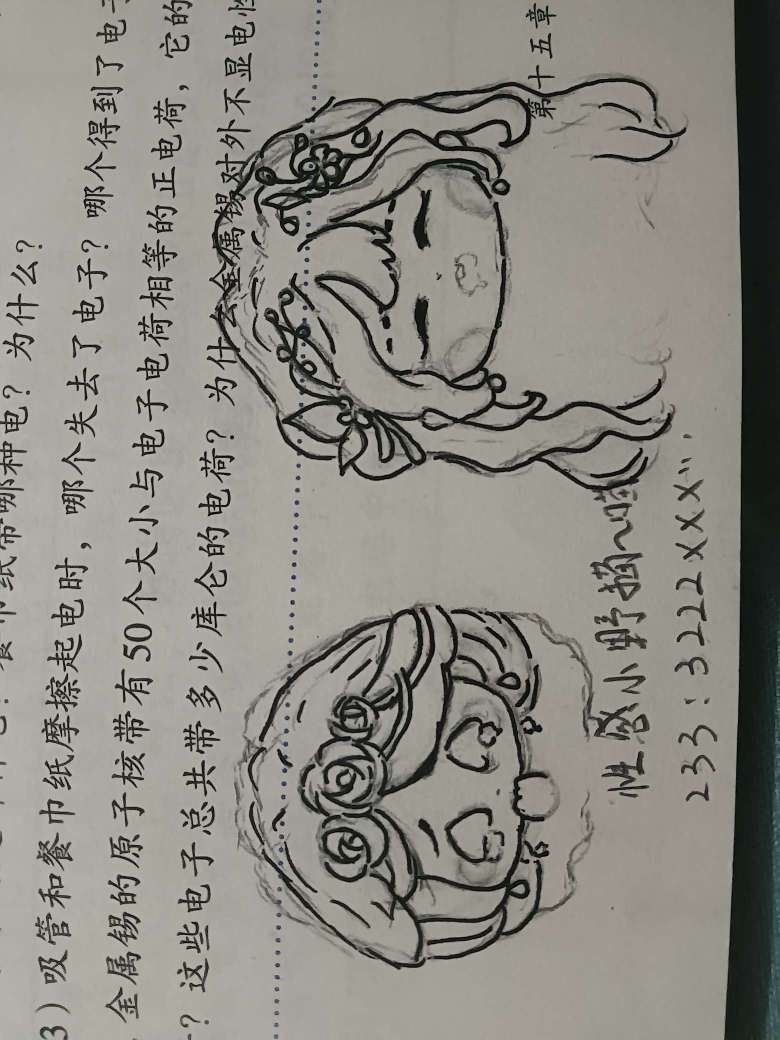 种电？为什么？
3）吸管和餐巾纸摩擦起电时，哪个失去了电子？哪个得到了电子
金属锡的原子核带有50个大小与电子电荷相等的正电荷，它的
？这些电子总共带多少库仑的电荷？为什么金属锡对外不显电性
第十五章
性感小野猫~喵
233:3222xxx